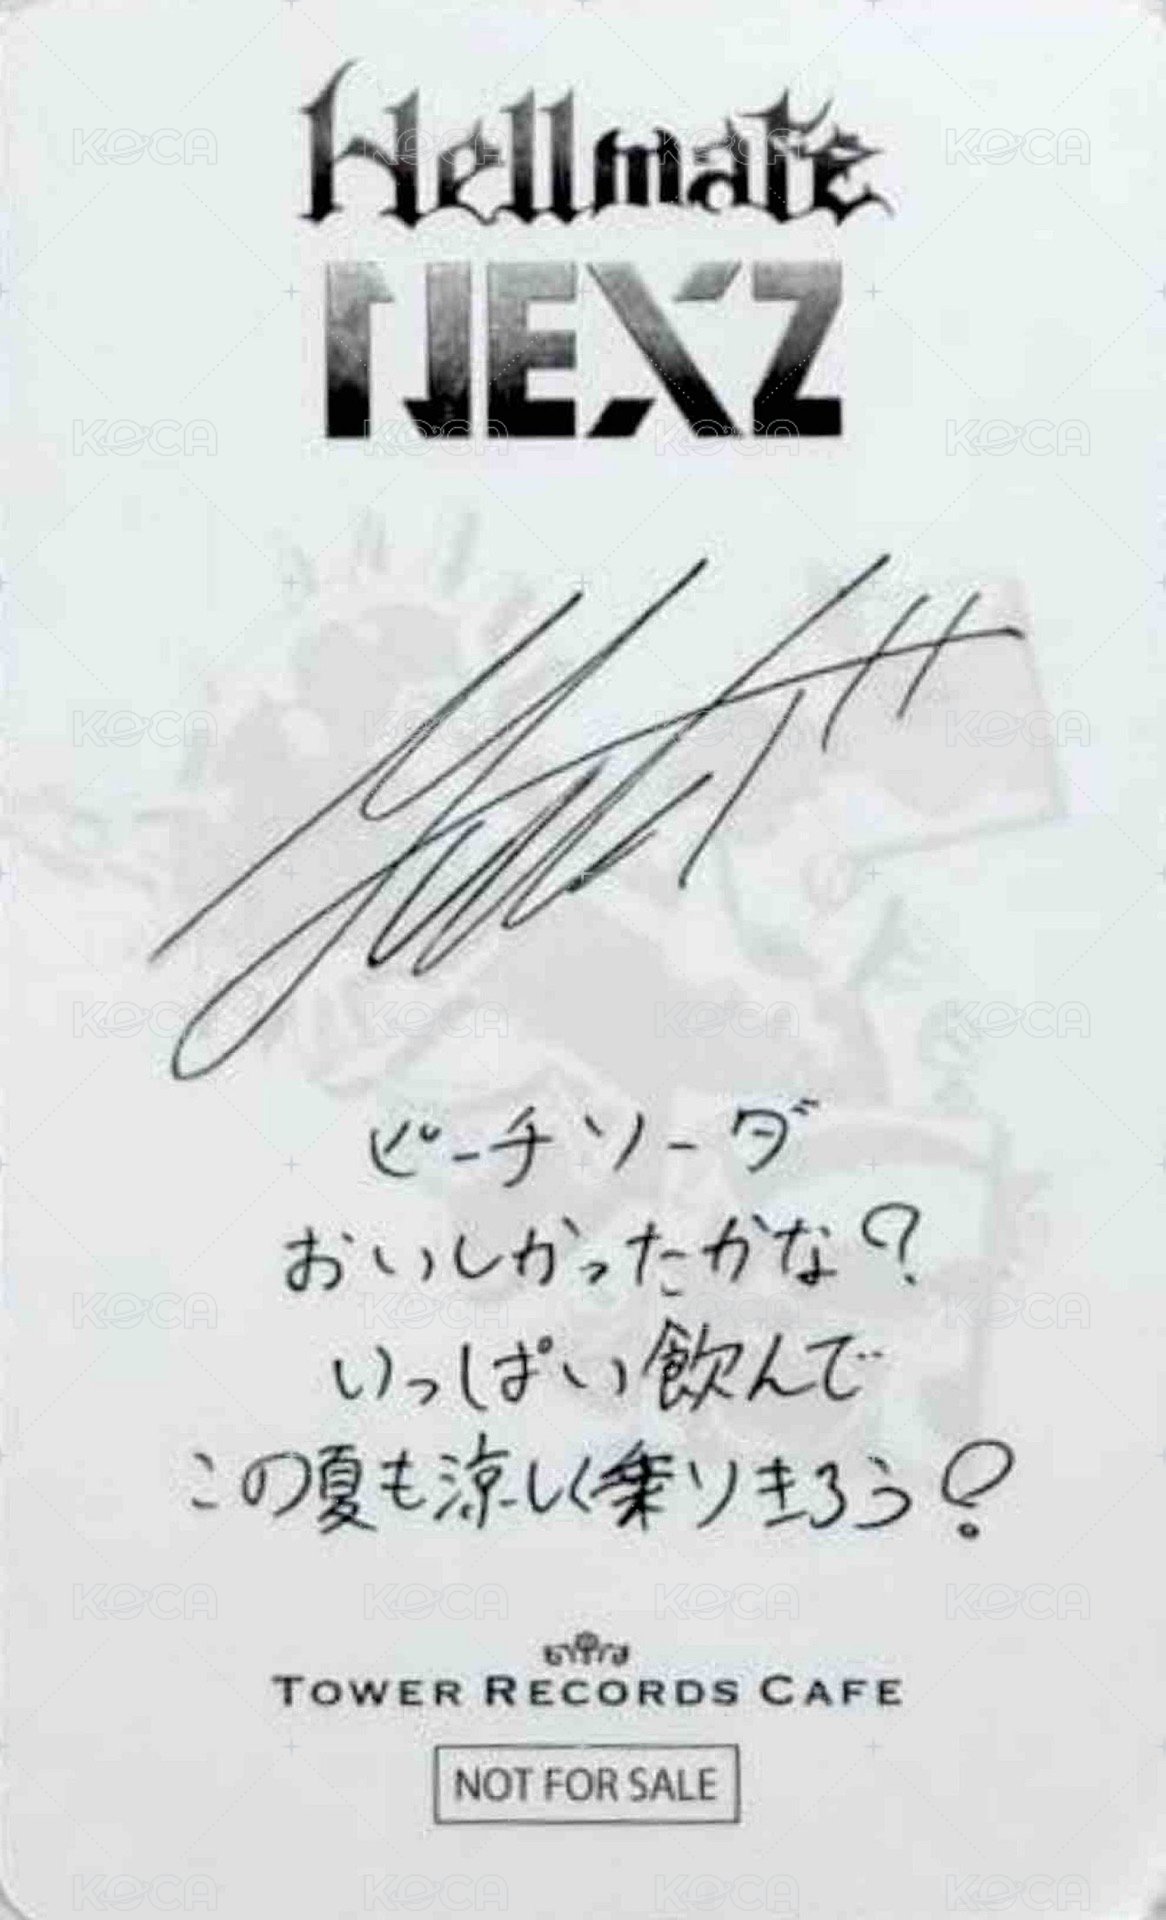 Hellmate
NEXZ
ピーチソーダ
おいしかったかな?
いっぱい飲んで
この夏も涼しく乗りきろう?
TOWER RECORDS CAFE
NOT FOR SALE
KOCA